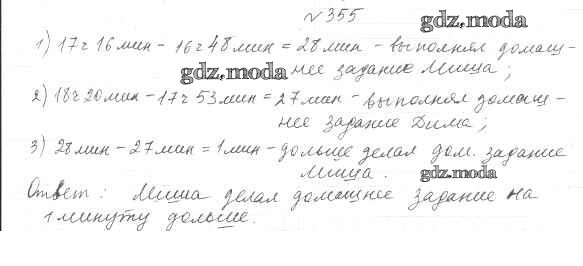 №355
gdz.moda
1) 17ч 16 мин - 16ч 48 мин = 28 мин - выполнял домаш-
gdz.moda нее задание Миша;
2) 18ч 20 мин - 17ч 53 мин = 27 мин - выполнял домаш-
нее задание Дима;
3) 28 мин - 27 мин = 1 мин - дольше делал дом. задание
Миша.
gdz.moda
Ответ: Миша делал домашнее задание на
1 минуту дольше.